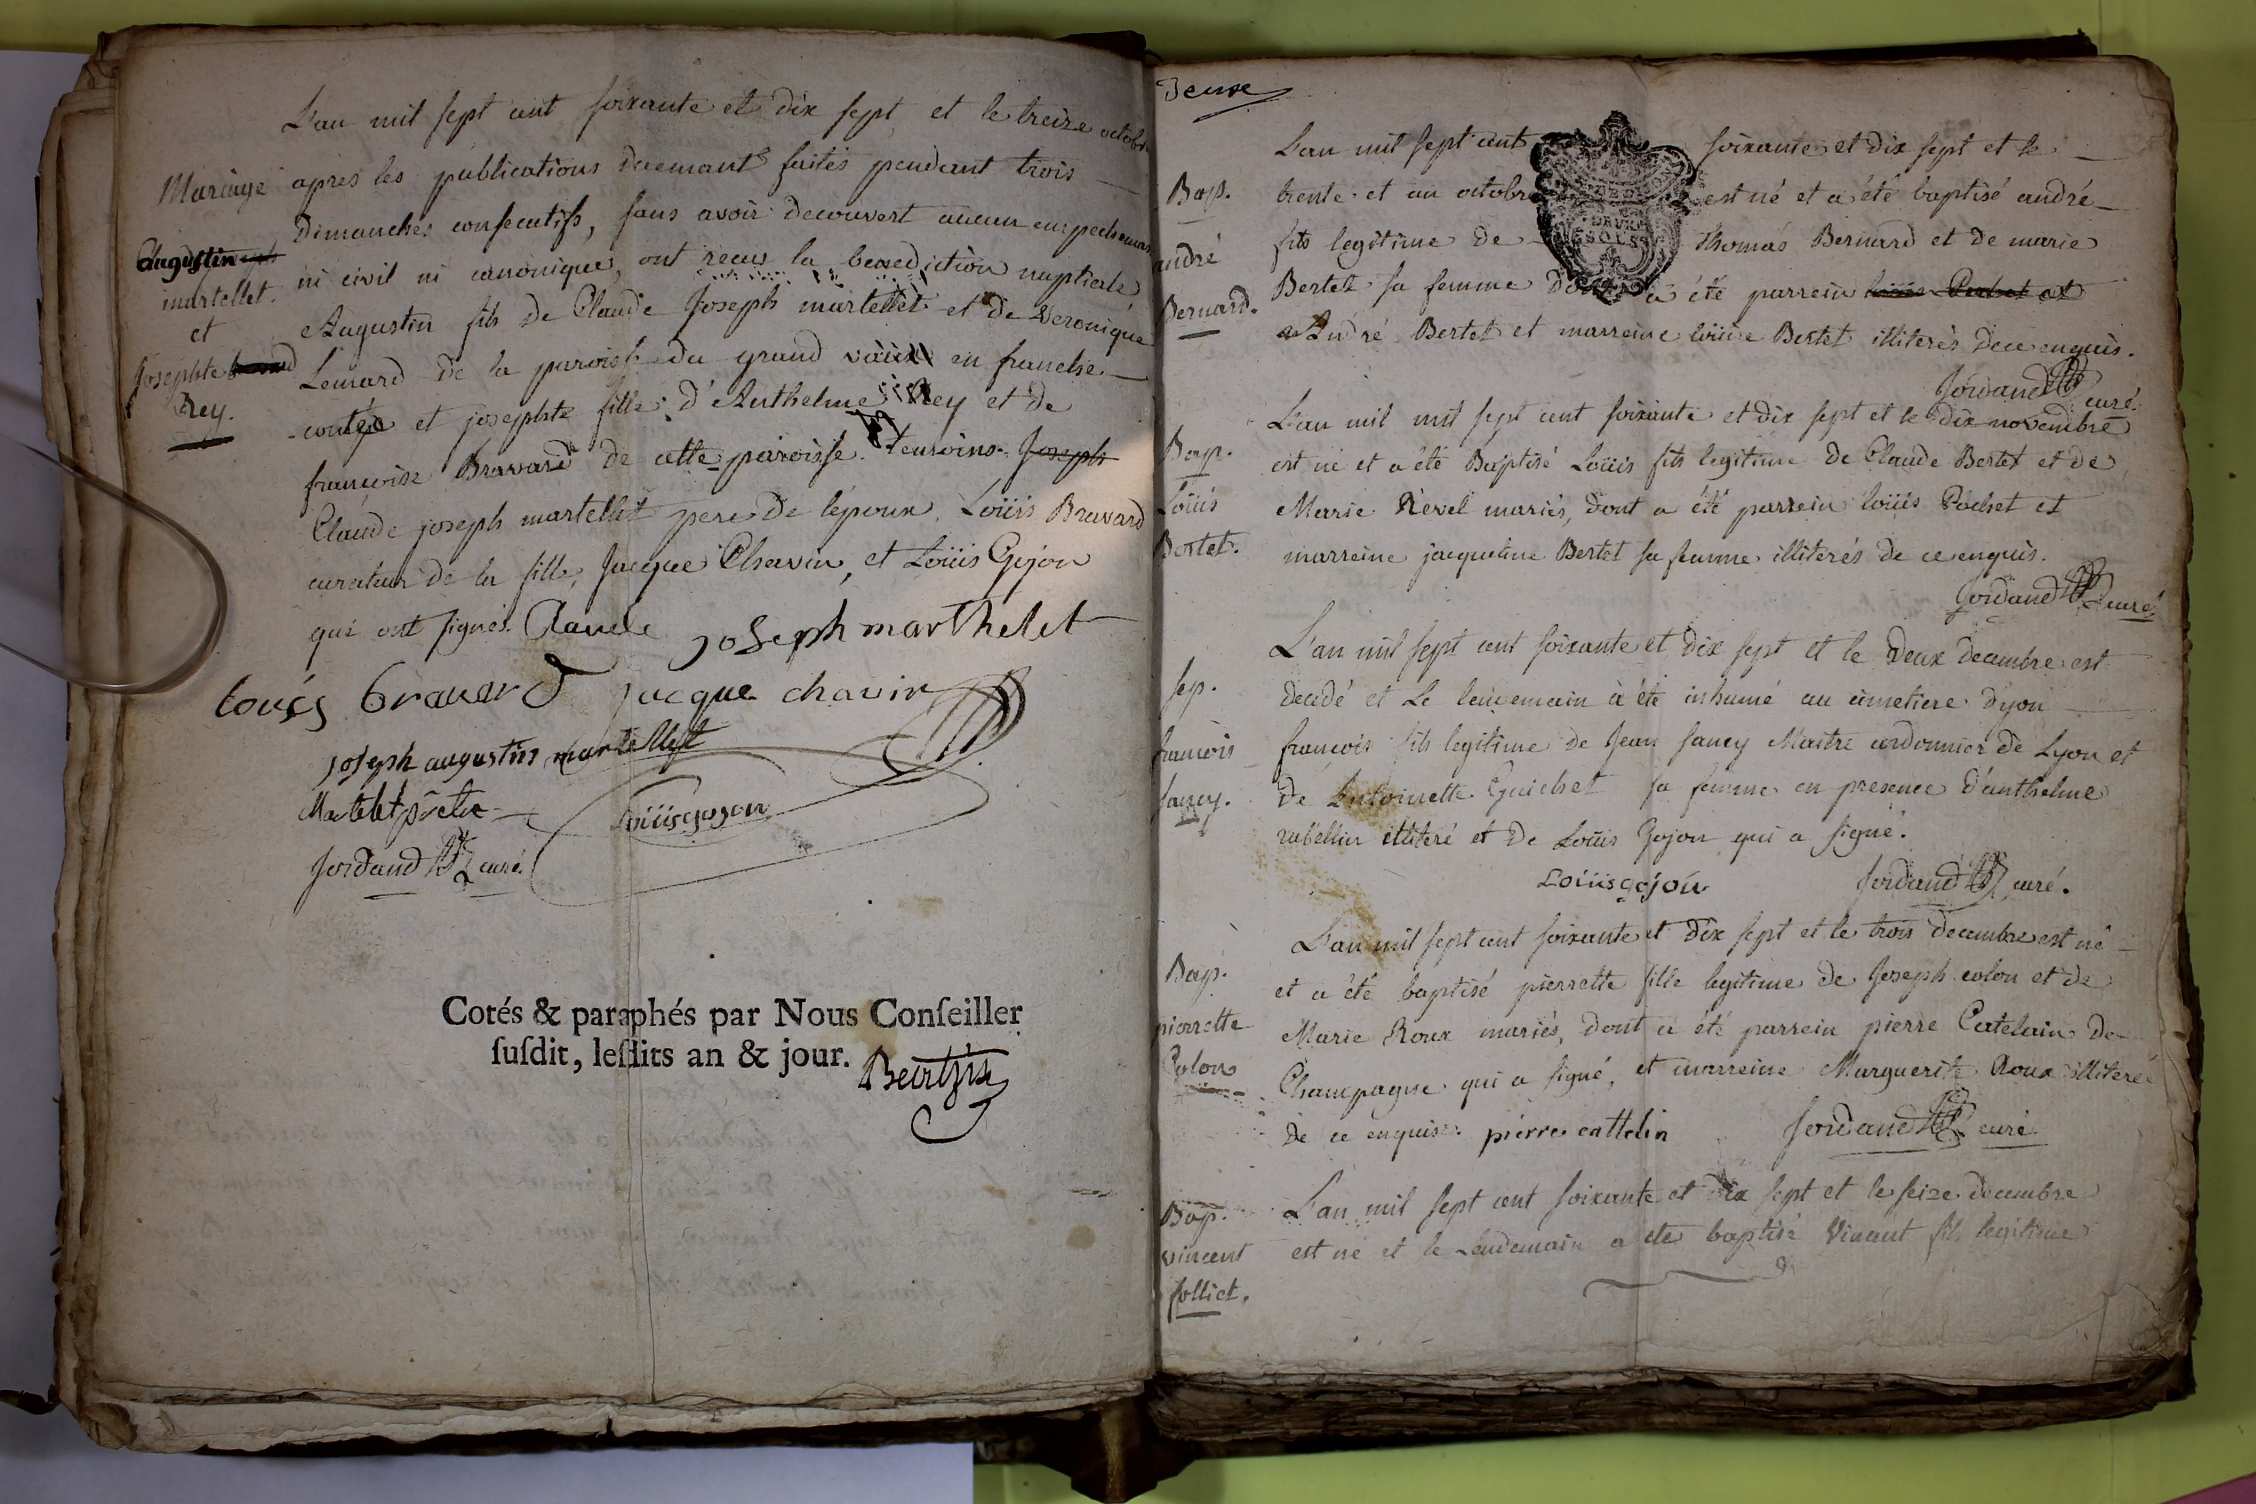 L'an mil sept cent soixante et dix sept, et le treize octobre
Mariage
après les publications duemant faites pendant trois
dimanches consecutifs, sans avoir decouvert aucun empechemant
Augustin
martellet.
et
Josephte
Rey.
ni civil ni canonique, ont recus la benediction nuptiale,
Augustin fils de Claude Joseph martellet et de Veronique
Lemard de la paroisse du grand vaux en franche
comté et josephte fille d'Anthelme Rey et de
françoise Bravard de cette paroisse. temoins Joseph
Claude joseph martellet pere de l'époux, Loüis Bravard
curateur de la fille, Jacque Chavin, et Loüis Gojon
qui ont signés. Claude joseph marthelet
louis bravard jacque chavin
joseph augustin martellest
Martelet prêtre Loüis gojon
Jordand curé.
Cotés & paraphés par Nous Conseiller
susdit, lesdits an & jour.
deuxe
L'an mil sept cent soixante et dix sept et le
Bap.
andré
Bernard.
trente et un octobre est né et a été baptisé andré
fils legitime de Thomas Bernard et de marie
Bertet sa femme dont a été parrein
André Bertet et marreine loüise Bertet illiterés de ce enquis.
Jordand curé.
L'an mil mil sept cent soixante et dix sept et le dix novembre
Bap.
Loüis
Bertet.
est né et a été Baptisé Loüis fils legitime de Claude Bertet et de
Marie Revel mariés, dont a été parrein loüis Pochet et
marreine jacqueline Bertet sa femme illiterés de ce enquis.
Jordand curé.
L'an mil sept cent soixante et dix sept et le deux decembre est
Sep.
françois
fancy.
decedé et le lendemain a été inhumé au cimetiere d'yon
françois fils legitime de Jean fancy Maitre cordonnier de Lyon et
de Antoinette Guichet sa femme en presence d'anthelme
rubellin illiteré et de Loüis Gojon qui a signé.
Loüis gojon Jordand curé.
L'an mil sept cent soixante et dix sept et le trois decembre est né
Bap.
pierrette
Colon
et a été baptisé pierrette fille legitime de Joseph colon et de
Marie Roux mariés, dont a été parrein pierre Catelain de
Champagne qui a signé, et marreine Marguerite Roux illiteré
de ce enquise. pierre cattelin Jordand curé.
L'an mil sept cent soixante et dix sept et le seize decembre
Bap.
vincent
folliet.
est né et le Lendemain a été baptisé Vincent fils legitime